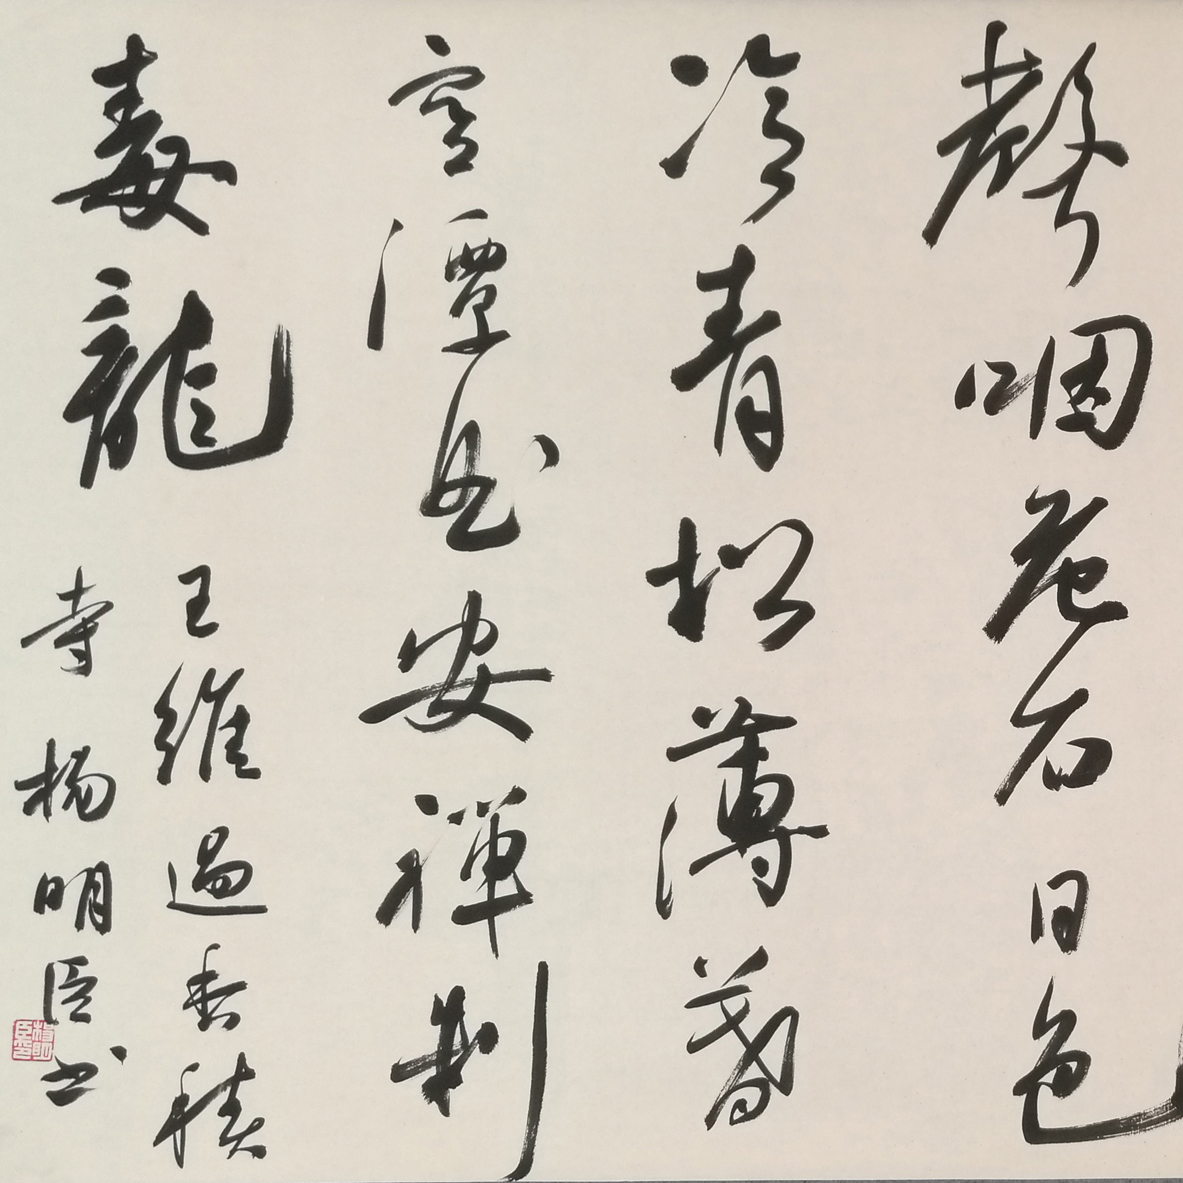 聲咽危石日色
冷青松薄暮
空潭曲安禪制
毒龍
王維過香積
寺 楊明臣书